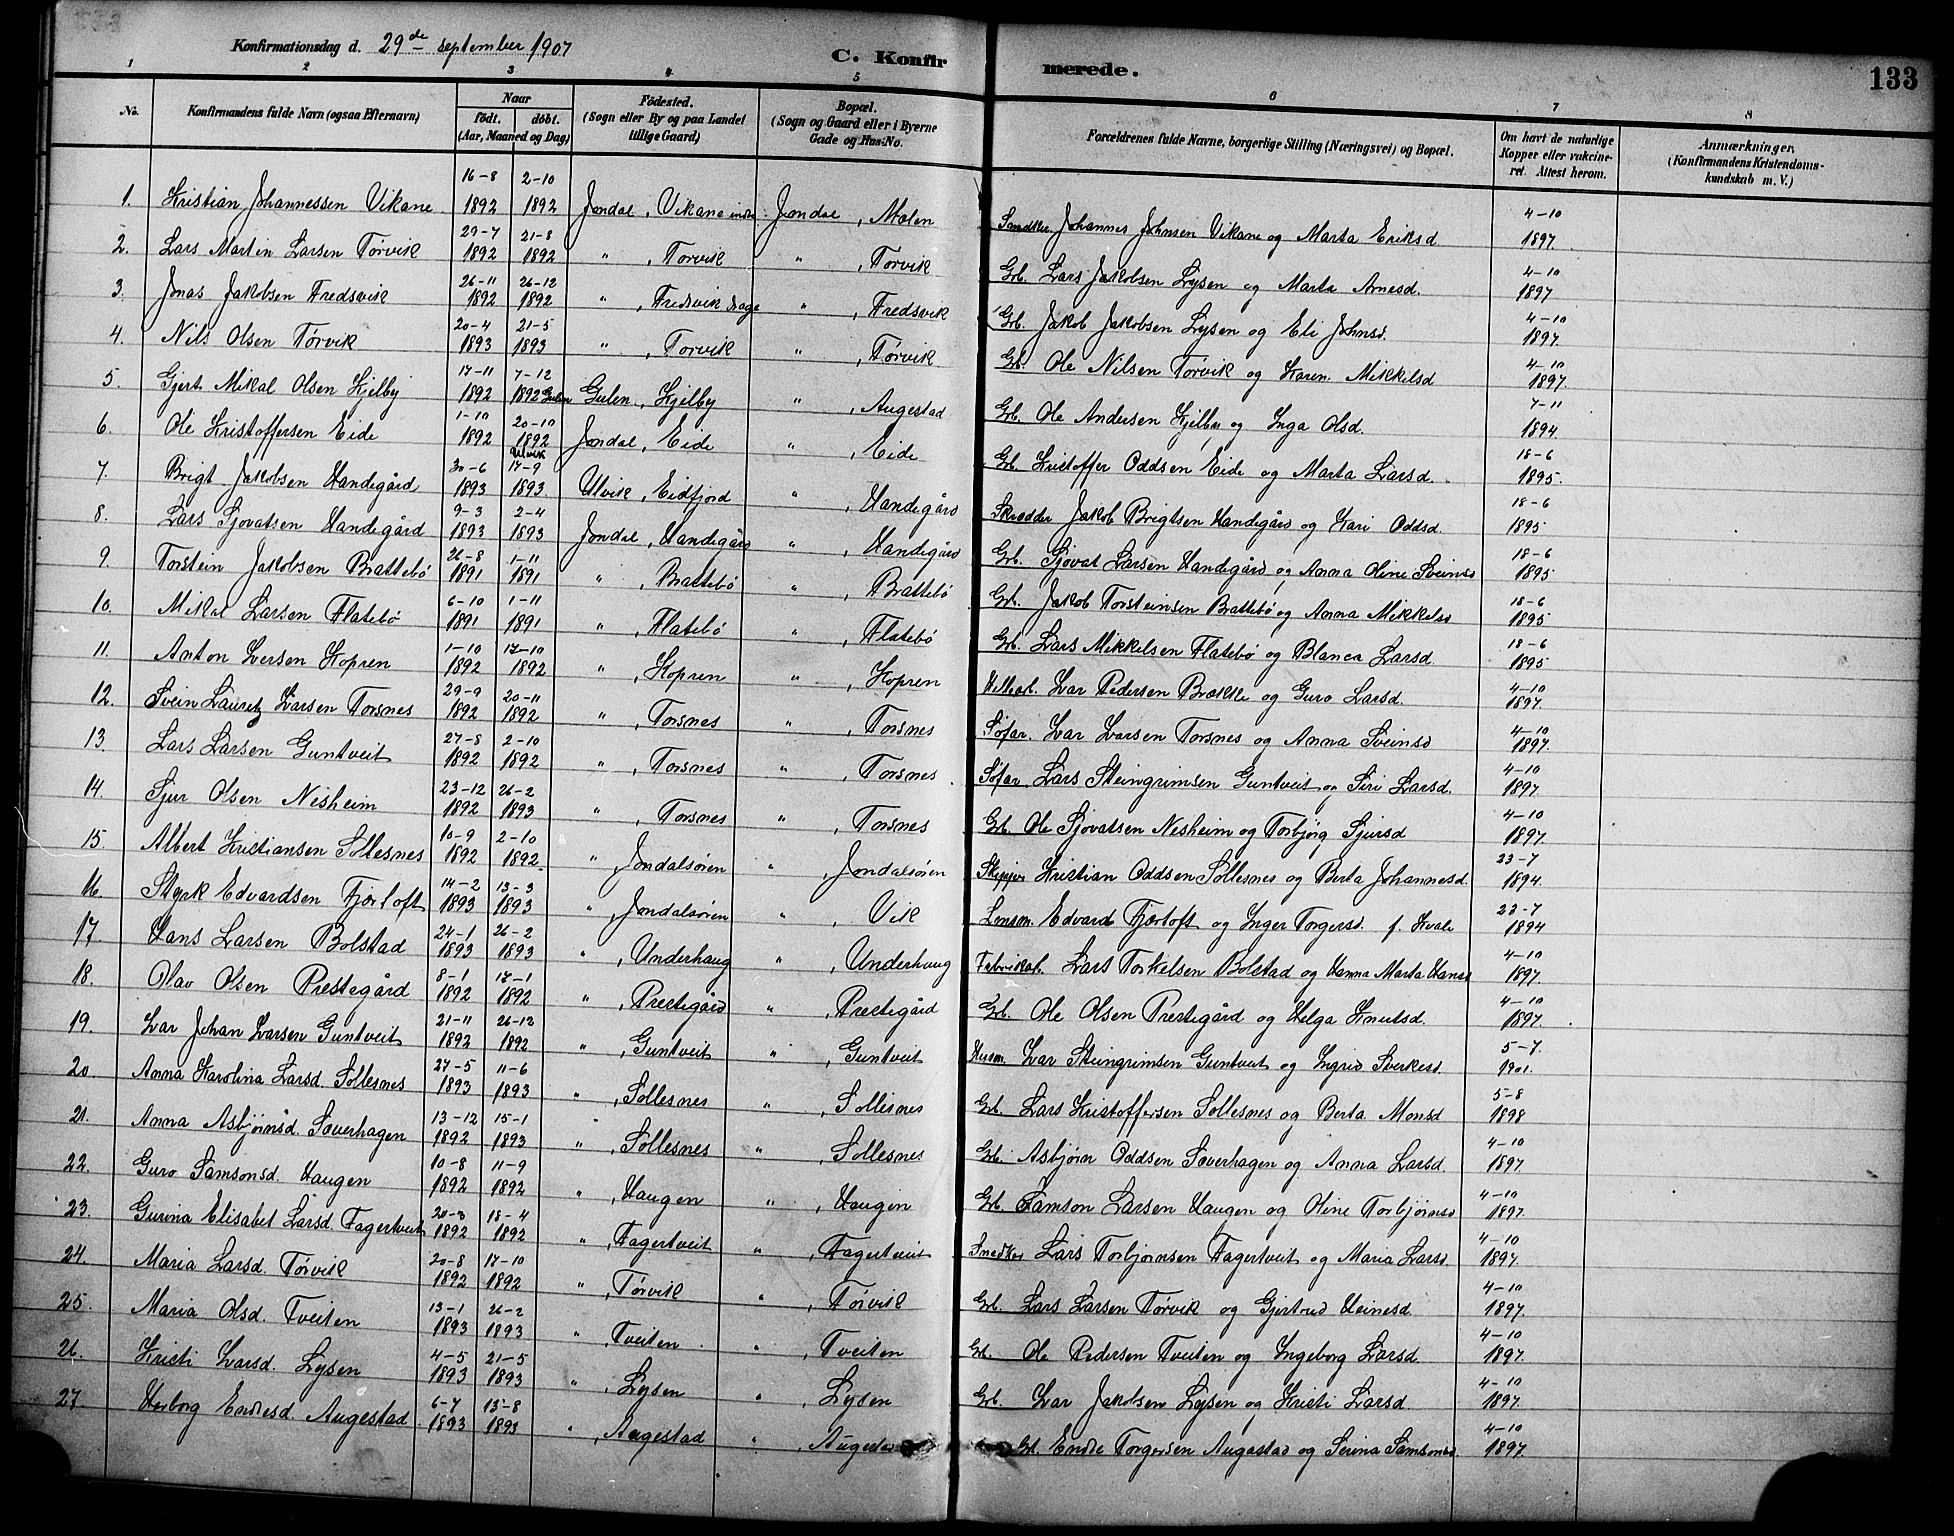 Konfirmationsdag d. 29de september 1907
C. Konfirmerede.
133
1 2 3 4 5 6 7 8
No. Konfirmandens fulde Navn (ogsaa Efternavn) Naar födt. döbt. (Aar, Maaned og Dag) Födested. (Sogn eller By og paa Landet tillige Gaard) Bopæl. (Sogn og Gaard eller i Byerne Gade og Hus-No. Forældrenes fulde Navne, borgerlige Stilling (Næringsvei) og Bopæl. Om havt de naturlige Kopper eller vakcineret. Attest herom. Anmærkninger. (Konfirmandens Kristendomskundskab m. V.)
1. Kristian Johannessen Vikane 16-8 1892 2-10 1892 Jondal, Vikane indre Jondal, Molen Johannes Johnsen Vikane og Marta Eriksd 4-10 1897
2. Lars Martin Larsen Törvik 29-7 1892 21-8 1892 " , Torvik " , Torvik Grb. Lars Jakobsen Lysen og Marta Arnesd. 4-10 1897
3. Jonas Jakobsen Fredsvik 26-11 1892 26-12 1892 " , Fredsvik " , Fredsvik Grb. Jakob Jakobsen Lysen og Eli Johnsd. 4-10 1897.
4. Nils Olsen Törvik 20-4 1893 21-5 1893 " , Torvik " , Törvik Grb. Ole Nilsen Törvik og Karen Mikkelsd 4-10 1897.
5. Gjert Mikal Olsen Kjelby 17-11 1892 7-12 1892 Gulen Gulen, Kjelby " , Augestad Grb. Ole Andersen Kjelby og Inga Olsd. 7-11 1894.
6. Ole Kristoffersen Eide 1-10 1892 20-10 1892 Jondal, Eide " , Eide Grb. Kristoffer Oddsen Eide og Marta Larsd. 18-6 1895.
7. Brigt Jakobsen Handegård 30-6 1893 Ulvik 17-9 1893. Ulvik, Eidfjord " , Handegård Skrædder Jakob Brigtsen Handegård og Kari Oddsd. 18-6 1895
8. Lars Sjovatsen Handegård 9-3 1893 2-4 1893 Jondal, Handegård " , Handegård Grb. Sjovat Larsen Handegård og Anna Oline Sveinsd 18-6 1895
9. Torstein Jakobsen Brattebö 26-8 1891 1-11 1891 " , Brattebö " , Brattebö Grb. Jakob Torsteinsen Brattebö og Anna Mikkelsd 18-6 1895
10. Mikal Larsen Flatebö 6-10 1891 1-11 1891 " , Flatebö " , Flatebö Grb. Lars Mikkelsen Flatebö og Blanca Larsd. 18-6 1895
11. Anton Iversen Kopren 1-10 1892 17-10 1892 " , Kopren " , Kopren Ivar Pedersen Brække og Guro Larsd. 4-10 1897.
12. Svein Lauretz Ivarsen Torsnes 29-9 1892 20-11 1892 " , Torsnes " , Torsnes Söfar. Ivar Ivarsen Torsnes og Anna Sveinsd 4-10 1897.
13. Lars Larsen Guntveit 27-8 1892 2-10 1892 " , Torsnes " , Torsnes. Söfar. Lars Steingrimsen Guntveit og Siri Larsd. 4-10 1897.
14. Sjur Olsen Nesheim 23-12 1892 26-2 1893 " , Torsnes " , Torsnes Grb. Ole Sjovatsen Nesheim og Torbjörg Sjursd 4-10 1897.
15 Albert Kristiansen Sollesnes 10-9 1892 2-10 1892 " , Jondalsören " , Jondalsören Skipper Kristian Oddsen Sollesnes og Berta Johannesd. 23-7 1894.
16. Styrk Edvardsen Fjærloft 14-2 1893 13-3 1893 " , Jondalsören " , Vik Lensm. Edvard Fjærtoft og Inger Torgersd. f. Hvale 23-7 1894
17. Hans Larsen Bolstad 24-1 1893 26-2 1893 " , Underhaug " , Underhaug Lars Torkelsen Bolstad og Hanna Marta Hansd 4-10 1897.
18. Olav Olsen Prestegård 8-1 1892 17-1 1892 " , Prestegård " , Prestegård Grb. Ole Olsen Prestegård og Helga Knutsd. 4-10 1897.
19. Ivar Johan Ivarsen Guntveit 21-11 1892 26-12 1892 " , Guntveit " , Guntveit Husm. Ivar Steingrimsen Guntveit og Ingrid Sverkesd. 5-7. 1901.
20 Anna Karolina Larsd. Sollesnes 27-5 1893 11-6 1893 " , Sollesnes " , Sollesnes Grb. Lars Kristoffersen Sollesnes og Berta Monsd 5-8 1898
21. Anna Asbjörnsd. Saverhagen 13-12 1892 15-1 1893 " , Sollesnes " , Sollesnes Grb. Asbjörn Oddsen Saverhagen og Anna Larsd. 4-10 1897.
22. Guro Samsonsd. Haugen 10-8 1892 11-9 1892 " , Haugen " , Haugen Grb. Samson Larsen Haugen og Oline Torbjörnsd 4-10 1897.
23. Gurina Elisabet Larsd. Fagertveit 20-3 1892 18-4 1892 " , Fagertveit " , Fagertveit Snedker Lars Torbjörnsen Fagertveit og Maria Larsd. 4-10 1897.
24. Maria Larsd. Törvik 20-8 1892 17-10 1892 " , Törvik " , Törvik Grb. Lars Larsen Törvik og Gjertrud Heinesd. 4-10 1897.
25. Maria Olsd. Tveiten 13-1 1893 26-2 1893 " , Tveiten " , Tveiten Grb. Ole Pedersen Tveiten og Ingeborg Larsd. 4-10 1897.
26. Kristi Ivarsd. Lysen 4-5 1893 21-5 1893 " , Lysen " , Lysen Grb. Ivar Jakobsen Lysen og Kristi Larsd 4-10 1897.
27 Herborg Endresd. Augestad 6-7 1893 13-8 1893 " , Augestad " , Augestad Grb. Endre Torgersen Augastad og Serina Samsonsd. 4-10 1897.